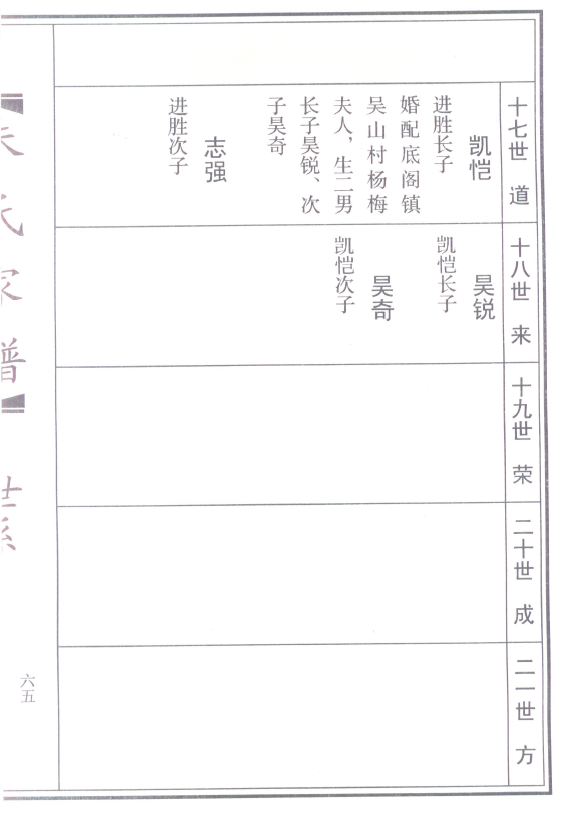 十七世 道
凯恺
进胜长子
婚配底阁镇
吴山村杨梅
夫人，生二男
长子昊锐、次
子昊奇
志强
进胜次子
十八世 来
昊锐
凯恺长子
昊奇
凯恺次子
十九世 荣
二十世 成
二一世 方
氏家谱
世系
六五